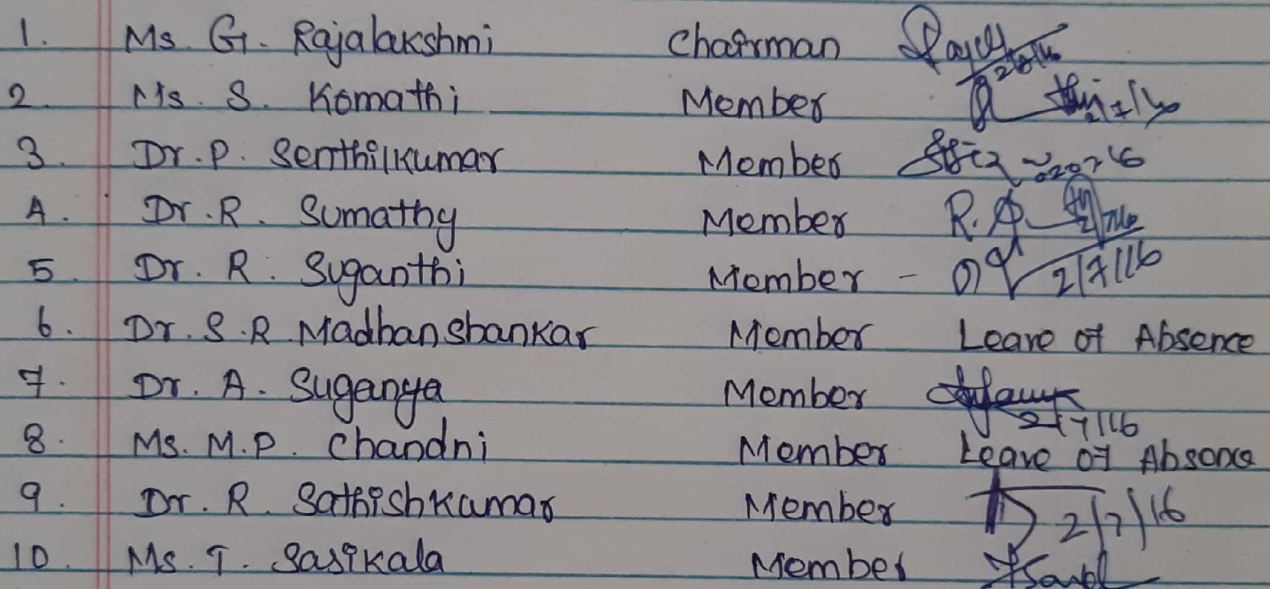 1. Ms. G. Rajalakshmi Chairman
2. Ms. S. Komathi Member
3. Dr. P. Senthilkumar Member
4. Dr. R. Sumathy Member R.
5. Dr. R. Suganthi Member - 2/7/16
6. Dr. S.R Madhanshankar Member Leave of Absence
7. Dr. A. Suganya Member 2/7/16
8. Ms. M.P. Chandni Member Leave of Absence
9. Dr. R. Sathishkumar Member 2/7/16
10. Ms. T. Sasikala Member